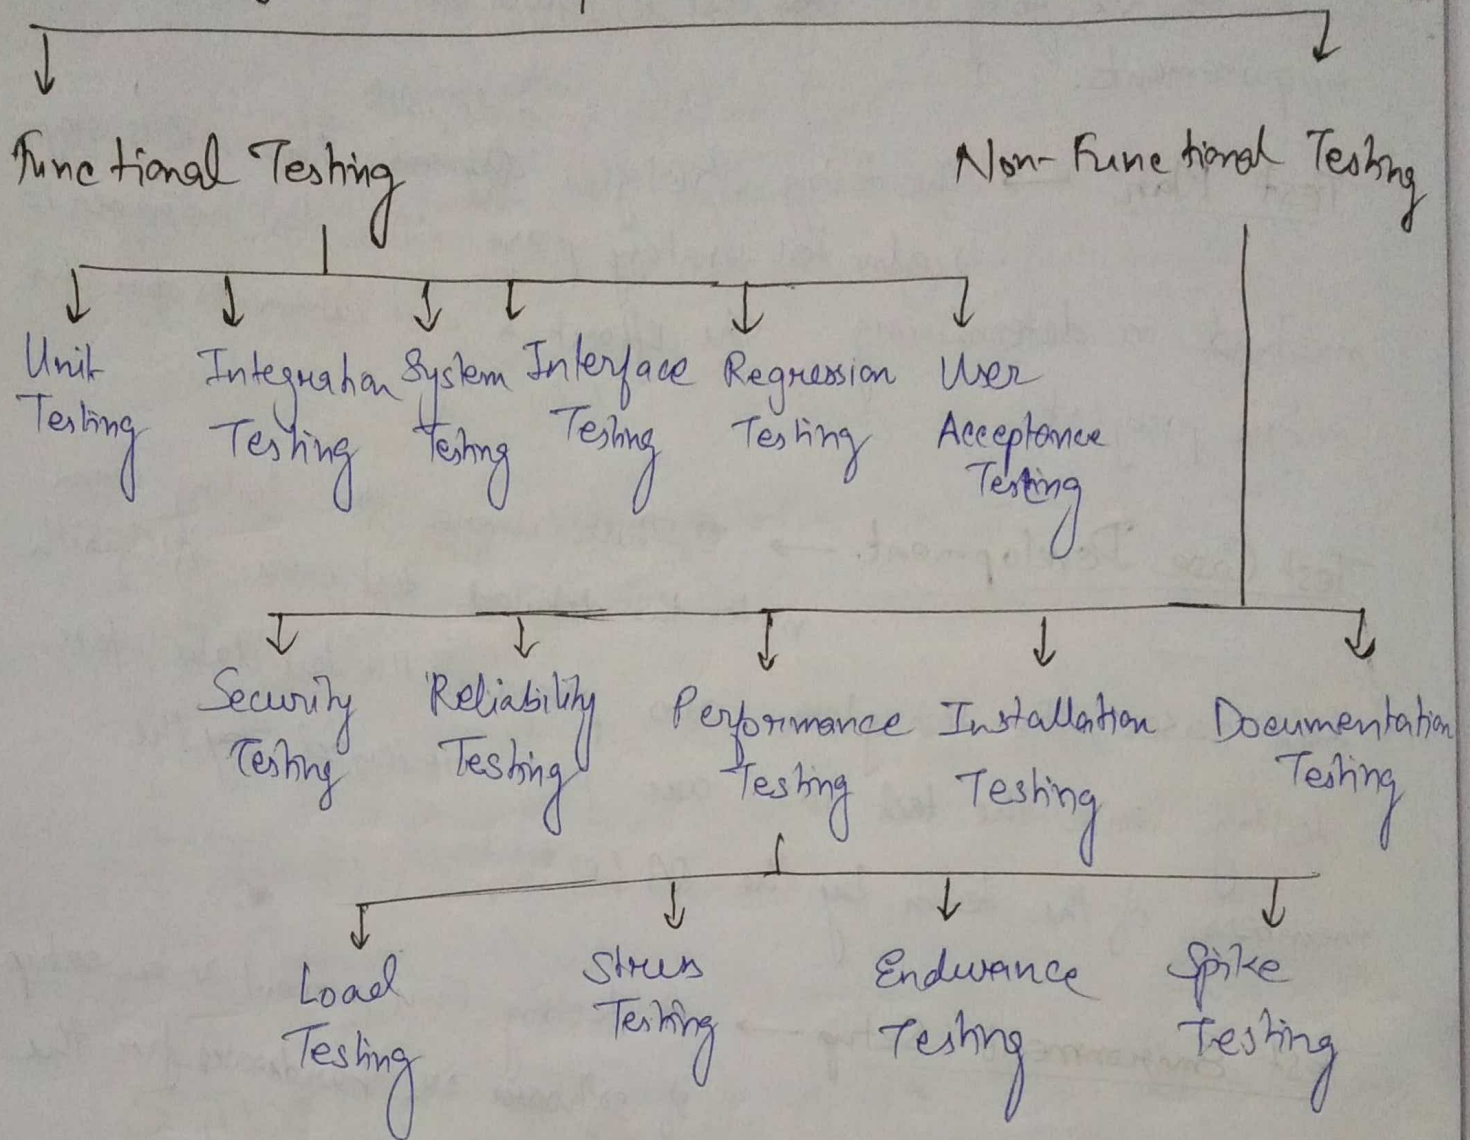 Functional Testing
Non-Functional Testing
Unit Testing
Integration Testing
System Testing
Interface Testing
Regression Testing
User Acceptance Testing
Security Testing
Reliability Testing
Performance Testing
Installation Testing
Documentation Testing
Load Testing
Stress Testing
Endurance Testing
Spike Testing